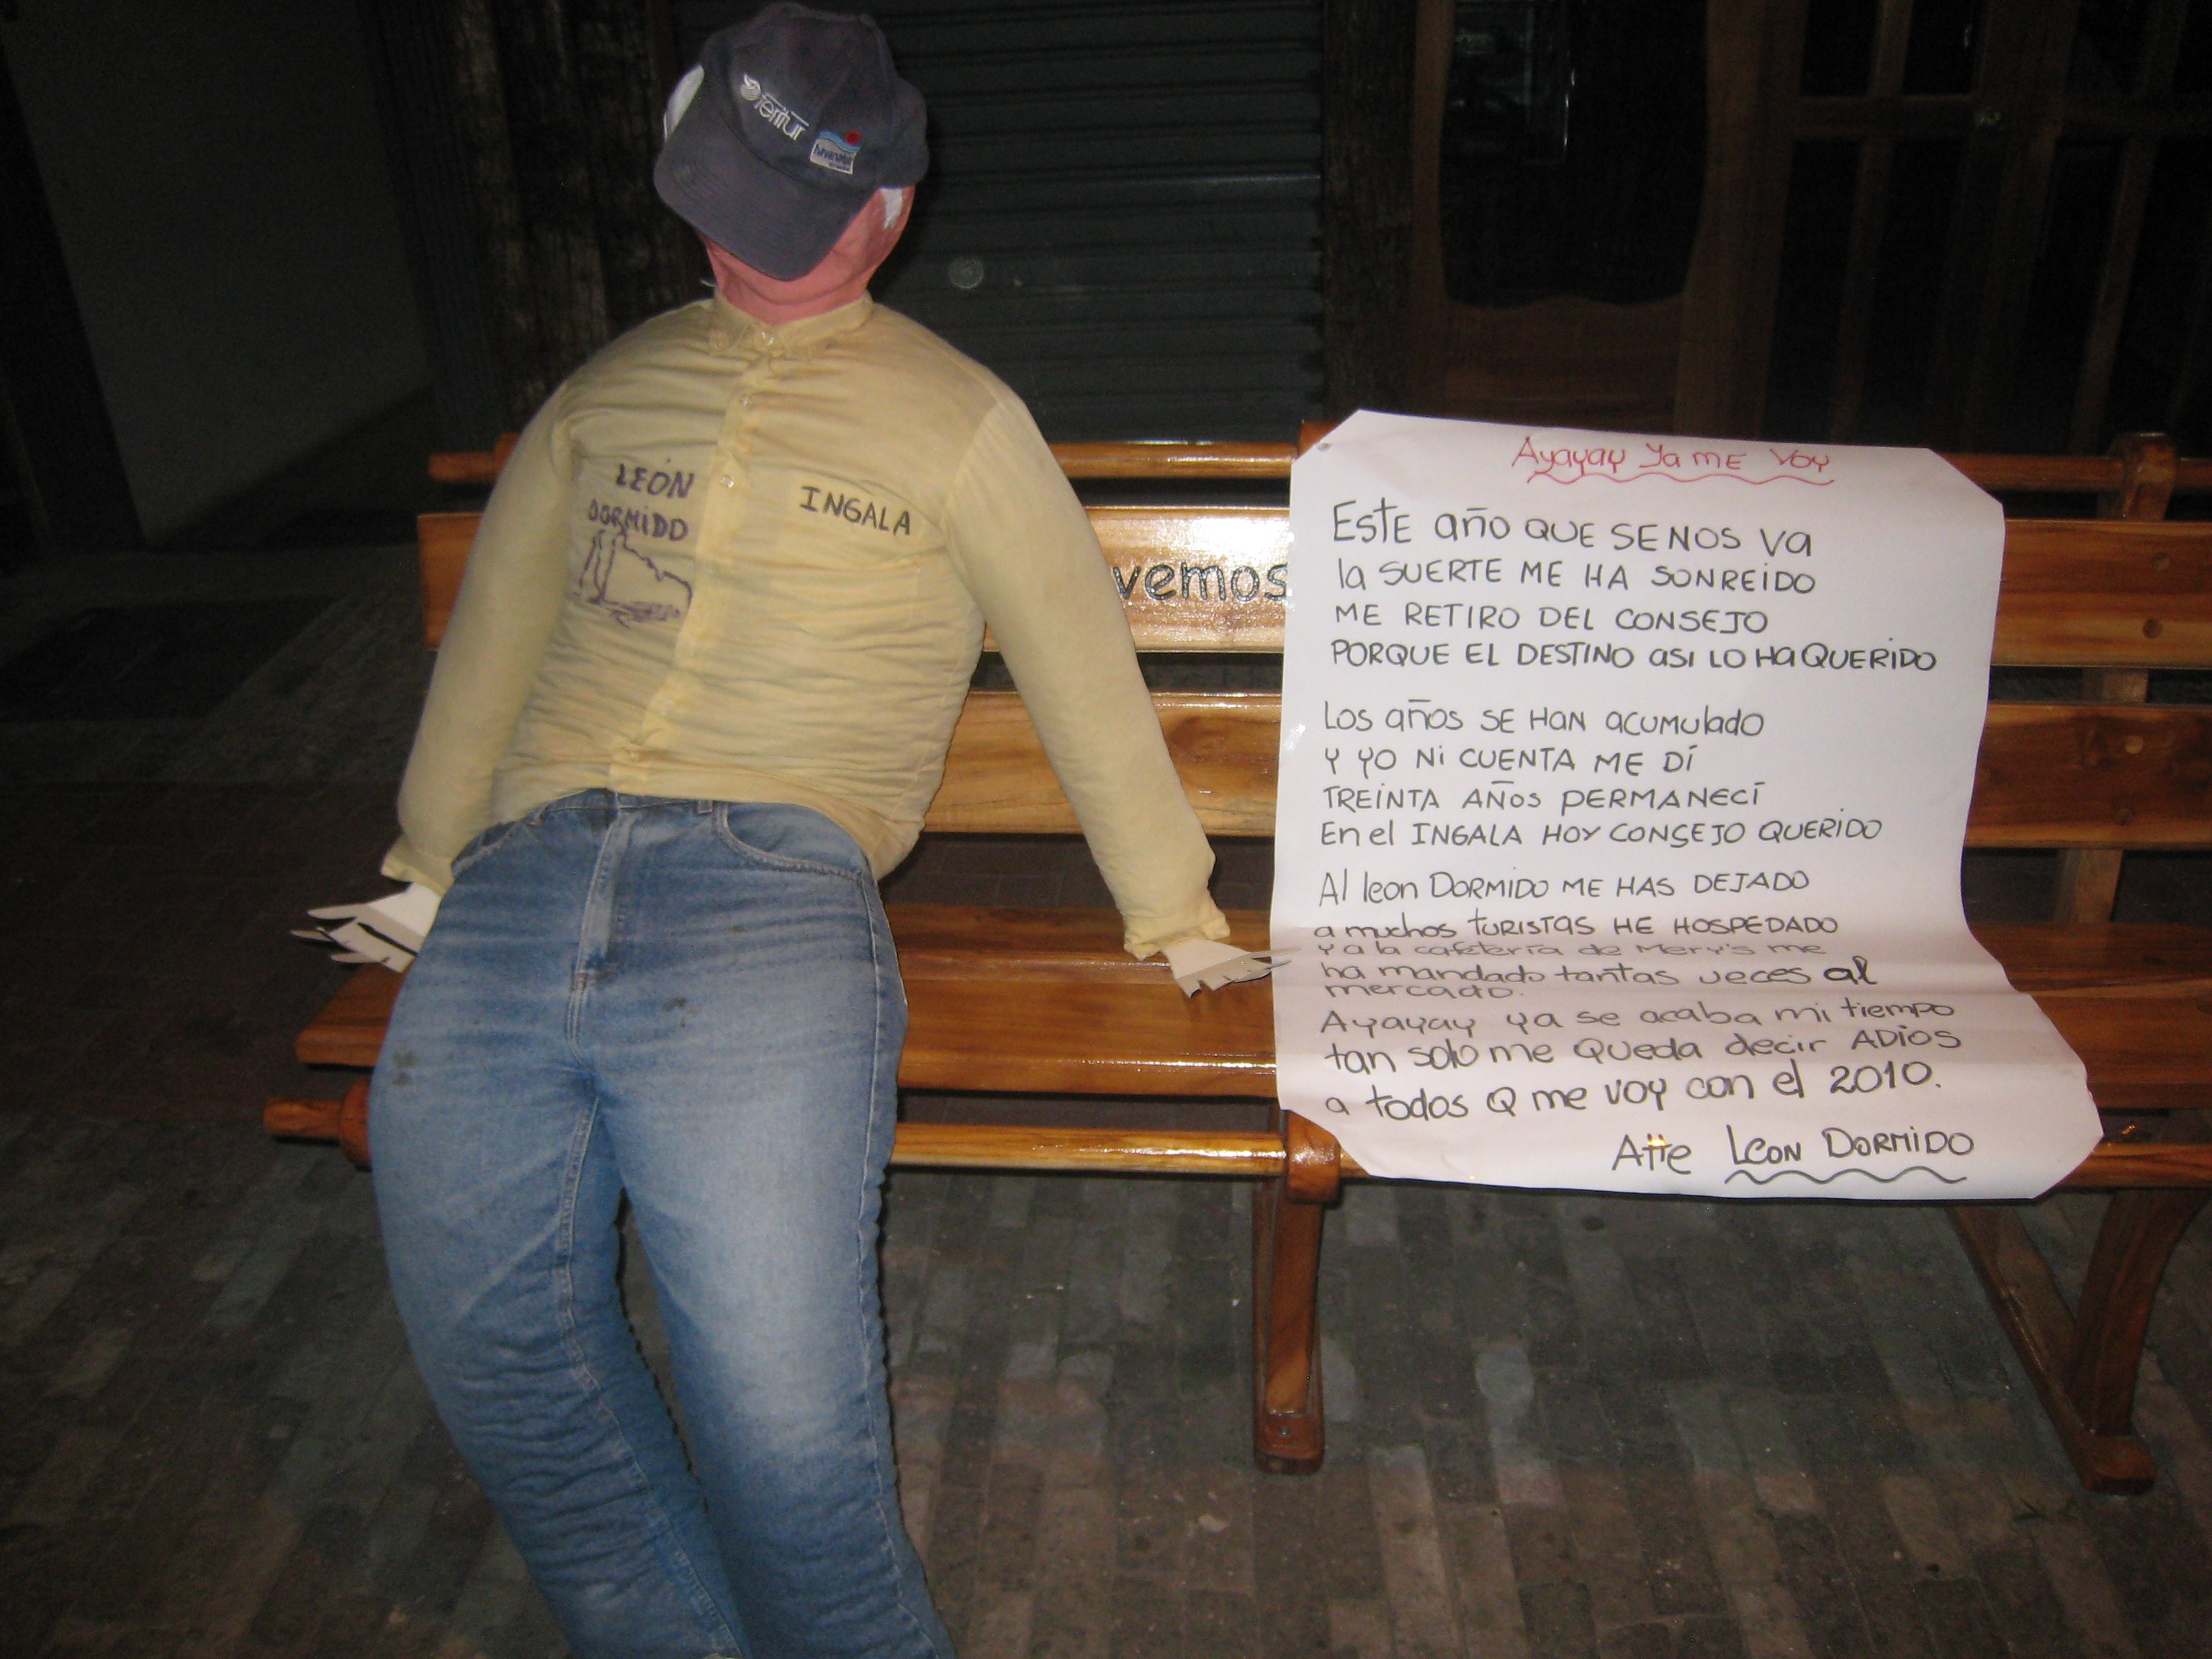 feritur
LEÓN
DORMIDO
INGALA
vemos
Ayayay Ya ME VOY
ESTE año QUE SE NOS VA
la SUERTE ME HA SONREIDO
ME RETIRO DEL CONSEJO
PORQUE EL DESTINO asi LO Ha QUERIDO
Los años SE Han acumulado
Y YO Ni CUENTA ME DÍ
TREINTA AÑOS PERMANECÍ
En el INGALA HOY CONSEJO QUERIDO
Al leon DORMIDO ME HAS DEJADO
a muchos TURISTAS HE HOSPEDADO
Y a la cafetería de Mery's me
ha mandado tantas veces al
mercado.
Ayayay ya se acaba mi tiempo
tan solo me Queda decir ADIOS
a todos Q me voy con el 2010.
Atte Leon DORMIDO